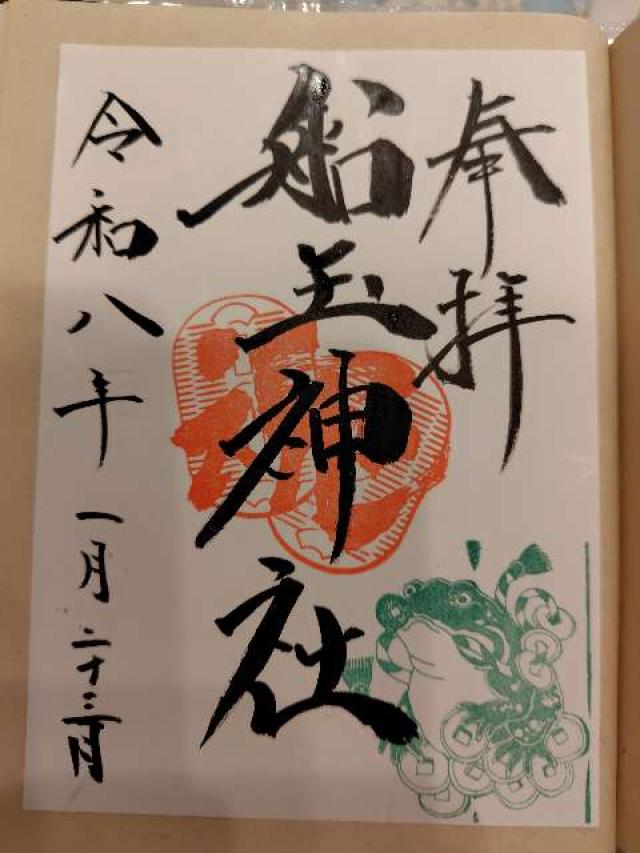 奉拝
船玉神社
令和八年一月二十三月